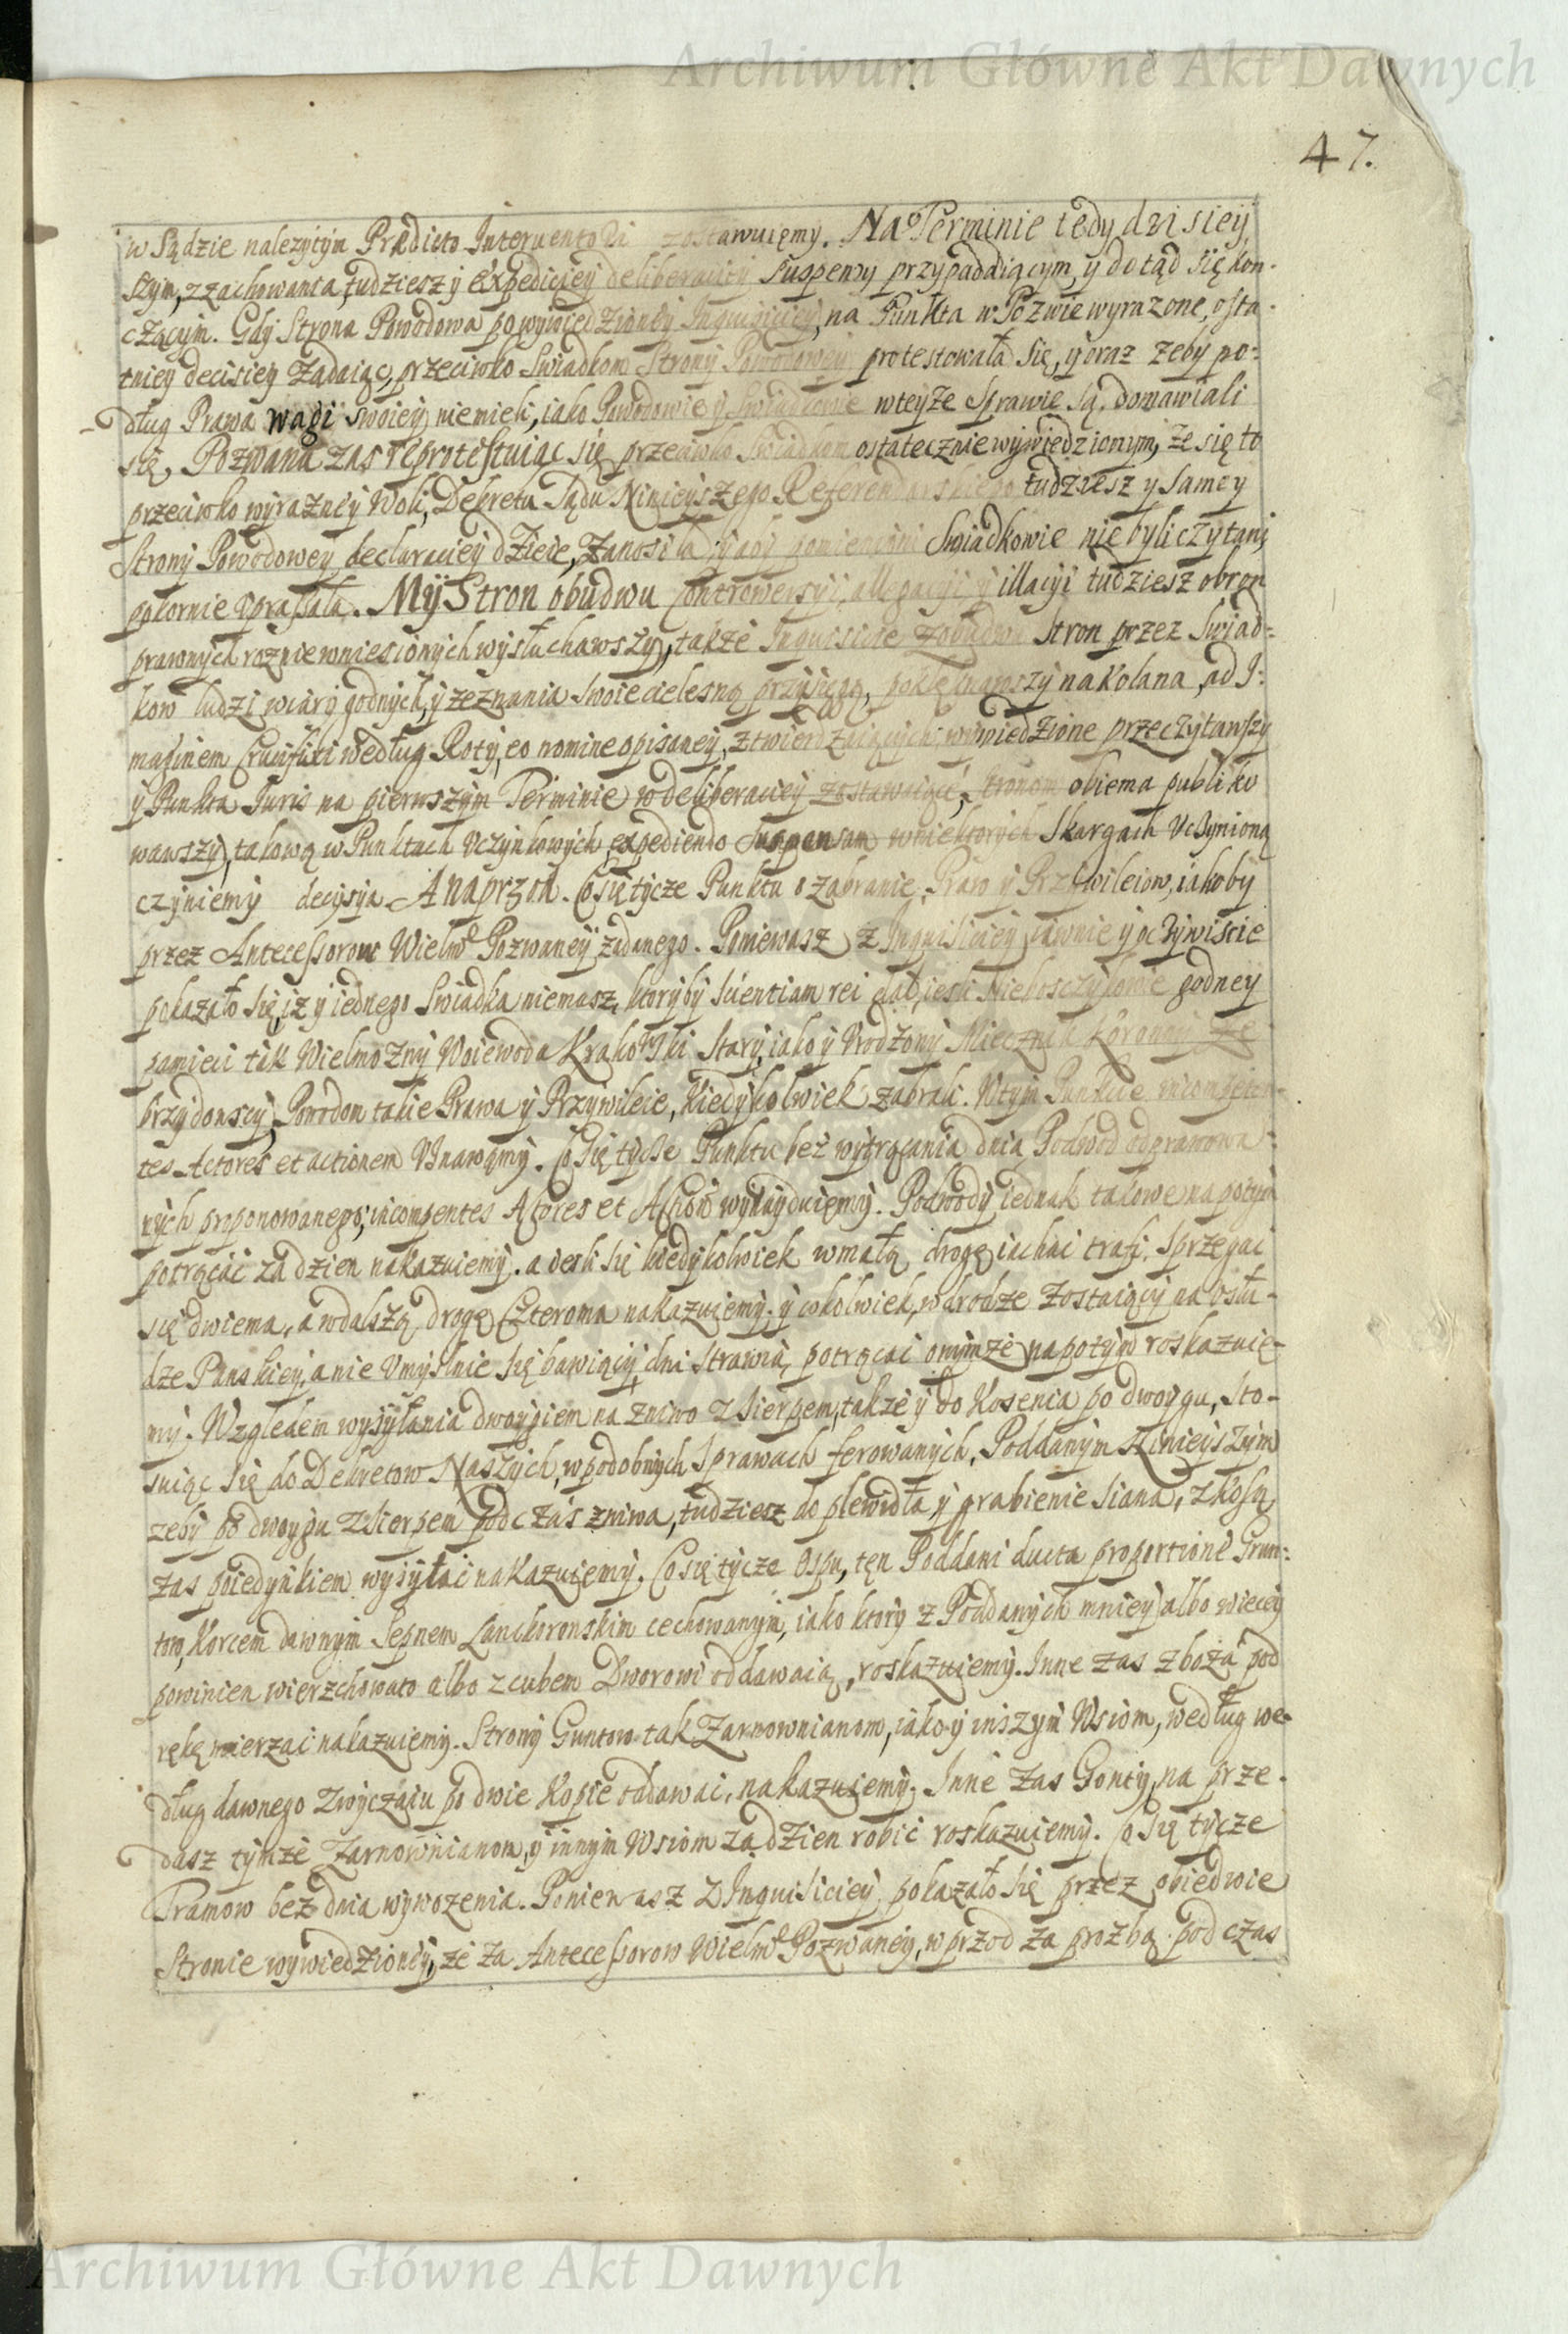 Archiwum Główne Akt Dawnych
47.
w Sądzie nalezytym Prædicto Interuentori zostawuięmy. Na Terminie tedy dzisiey
szym, z zachowania, tudziesz y expediciey deliberaciey suspensy przypadaiącym, y dotąd się kon-
czącym. Gdy Strona Powodowa po wywiedzioney Inquisiciey, na Punkta w Pozwie wyrazone, osta-
tniey decisiey ządaiąc, przeciwko Swiadkom Strony Powodowey protestowała się, y oraz zeby po-
dług Prawa wagi swoiey nie mieli, iako Powodowie y Swiadkowie w teyze Sprawie są, domawiali
się, Pozwana zas reprotestuiąc się przeciwko Swiadkom ostatecznie wywiedzionym, ze się to
przeciwko wyrazney Woli, Dekretu Sądu Ninieyszego Referendarskiego tudziesz y samey
Strony Powodowey declaraciey dzieie, zanosiła, y aby pomienieni Swiadkowie nie byli czytani
pokornie upraszała. My Stron obudwu controwersyi, allegacyi y illacyi tudziesz obron
prawnych roznie wniesionych wysłuchawszy, także Inquisicie z obudwu Stron przez Swiad-
kow ludzi wiary godnych, y zeznania swoie cielesną przysięgą, poklęknawszy na kolana, ad I-
maginem Crucifixi według Roty, eo nomine opisaney, ztwierdzaiących, wywiedzione przeczytawszy
y Punkta Juris na pierwszym Terminie w deliberaciey zostawaiące, Stronom obiema publiko
wawszy, takową w Punktach Uczynkowych, expediendo suspensam w niektorych Skargach Uczynioną
czyniemy decysyą. A naprzod. Co się tycze Punktu o zabranie Praw y Przywileiow, iakoby
przez Antecessorow Wielm Pozwaney zadanego. Poniewasz z Inquisiciey iawnie y oczywiscie
pokazało się, iz y iednego Swiadka niemasz, ktoryby scientiam rei dał, iesli Nieboszczykowie godney
pamieci tak Wielmozny Woiewoda Krakowski Stary, iako y Urodzony Miecznik Koronny Ze
brzydowscy, Powodom takie Prawa y Przywileie, kiedykolwiek zabrali. W tym Punkcie incompeten-
tes Actores et actionem Uznawamy. Co się tycze Punktu bez wytrącania dnia Podwod odprawowa-
nych proponowanego, incompentes Actores et Action wynayduięmy. Podwody iednak takowe na potym
potrącac za dzien nakazuiemy. a iesli się kiedykolwiek w małą drogę iachac trafi, sprzegac
się dwiema, a w dalszą drogę czteroma nakazuięmy. y cokolwiek, w drodze zostaiący na usłu-
dze Panskiey, a nie Umyslnie się bawiący, dni strawią, potrącac onymze na potym roskazuie-
my. Wzgledem wysyłania dwoygiem na zniwo z sierpem, takze y do Kosenia po dwoygu, sto-
suiąc się do Dekretow Naszych, w podobnych sprawach ferowanych, Poddanym ninieyszym
zeby po dwoygu z sierpem podczas zniwa, tudziesz do plewidła y grabienie siana, z kosą
zas poiedynkiem wysyłac nakazuięmy. Co się tycze Ospu, tęn Poddani iuxta proportione Grun-
tow, Korcem dawnym Sepnem Lanckoronskim cechowanym, iako ktory z Poddanych mniey albo wiecey
powinien wierzchowato albo z cubem Dworowi oddawaią, roskazuięmy. Inne zas zboza pod
rękę mierzac nakazuiemy. Strony Guntow tak Zarnownianom, iako y inszym Wsiom, według we-
dług dawnego Zwyczaiu po dwie Kopie oddawac, nakazuięmy. Inne zas Gonty, na prze-
dasz tymze Zarnownianom, y innym Wsiom za dzien robic roskazuiemy. Co się tycze
Tramow bez dnia wywozenia. Poniewasz z Inquisiciey pokazało się przez obiedwie
Stronie wywiedzioney, ze za Antecessorow Wielm Pozwaney, w przod za prozbą podczas
Archiwum Główne Akt Dawnych